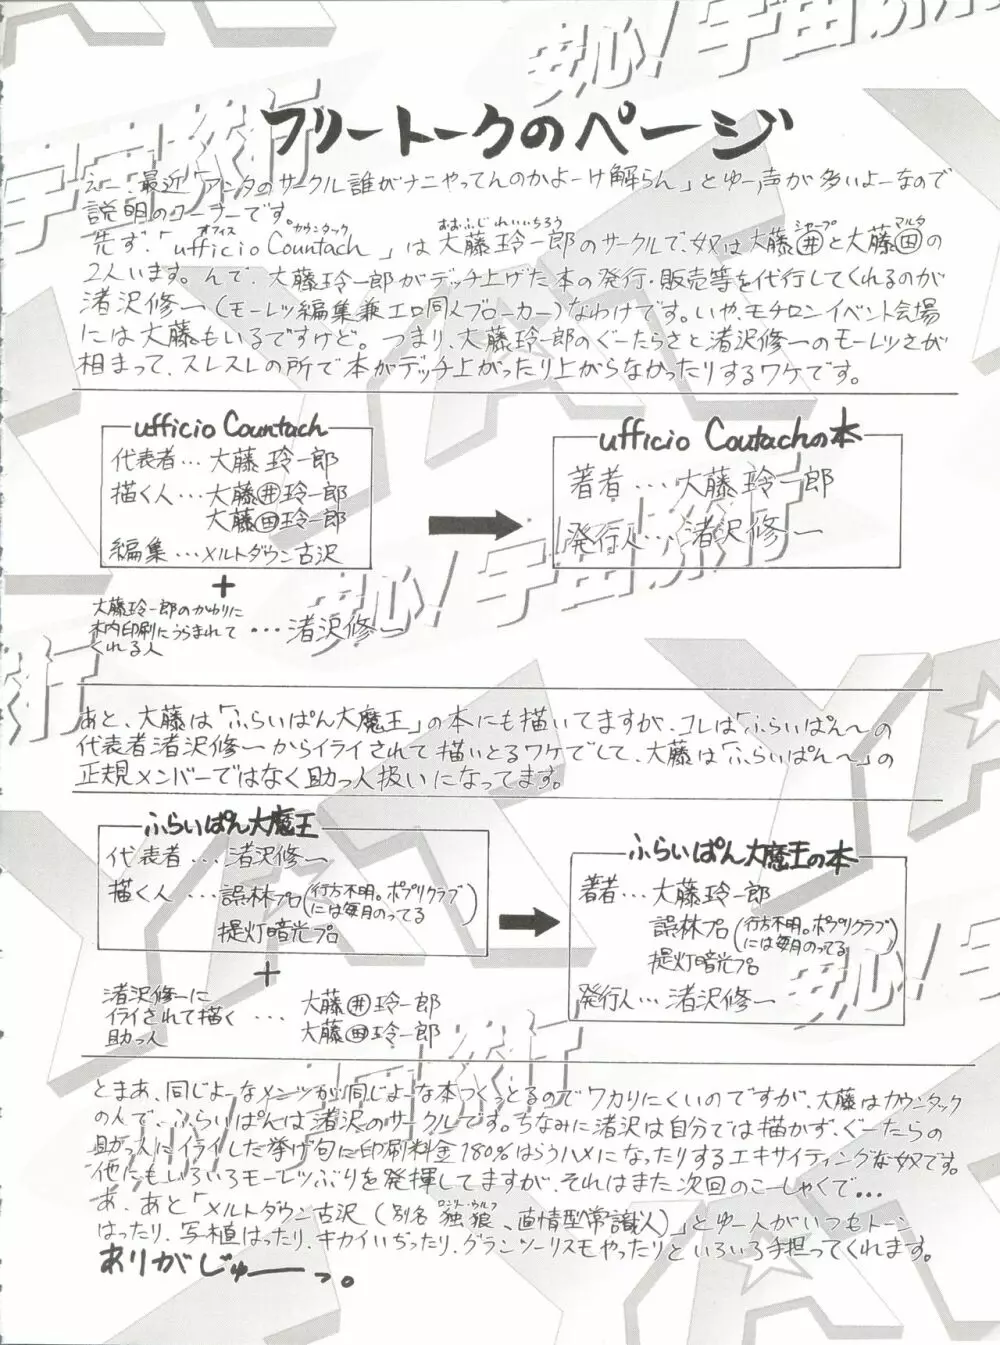 フリートークのページ
えー、最近「アンタのサークル誰がナニやってんのかよーけ解らん」とゆー声が多いよーなので
説明のコーナーです。
先ず、「ufficio Countach」は大藤玲一郎のサークルで、奴は大藤㊉と大藤㊉の
オフィス カウンタック おおふじ れいいちろう シャープ マルタ
2人います。んで、大藤玲一郎がデッチ上げた本の発行・販売等を代行してくれるのが
渚沢修一(モーレツ編集兼エロ同人ブローカー)なわけです。いや、モチロンイベント会場
には大藤もいるですけど。つまり、大藤玲一郎のぐーたらさと渚沢修一のモーレツさが
相まって、スレスレの所で本がデッチ上がったり上がらなかったりするワケです。
ufficio Countach
代表者…大藤玲一郎
描く人…大藤井玲一郎
大藤田玲一郎
編集…メルトダウン古沢
+
大藤玲一郎のかわりに
木内印刷にうらまれて
くれる人
…渚沢修一
ufficio Coutachの本
著者…大藤玲一郎
発行人…渚沢修一
あと、大藤は「ふらいぱん大魔王」の本にも描いてますが、コレは「ふらいぱん〜の
代表者渚沢修一からイライされて描いとるワケでして、大藤は「ふらいぱん〜」の
正規メンバーではなく助っ人扱いになってます。
ふらいぱん大魔王
代表者…渚沢修一
描く人…誤林プロ(行方不明。ポプリクラブ
には毎月のってる)
提灯暗光プロ
+
渚沢修一に
イライされて描く
助っ人
…大藤井玲一郎
大藤田玲一郎
ふらいぱん大魔王の本
著者…大藤玲一郎
誤林プロ(行方不明。ポプリクラブ
には毎月のってる)
提灯暗光プロ
発行人…渚沢修一
とまあ、同じよーなメンツが同じよーな本つくっとるのでワカりにくいのですが、大藤はカウンタック
の人で、ふらいぱんは渚沢のサークルです。ちなみに渚沢は自分では描かず、ぐーたらの
助っ人にイライした挙げ句に印刷料金180%はらうハメになったりするエキサイティングな奴です。
他にもいろいろモーレツぶりを発揮してますが、それはまた次回のこーしゃくで…
あ、あと「メルトダウン古沢(別名 独狼、直情型常識人)」とゆー人がいつもトーン
ロンリーウルフ
はったり、写植はったり、キカイいぢったり、グランツーリスモやったりといろいろ手担ってくれます。
ありがじゅーっ。
安心!宇宙旅行
YAT